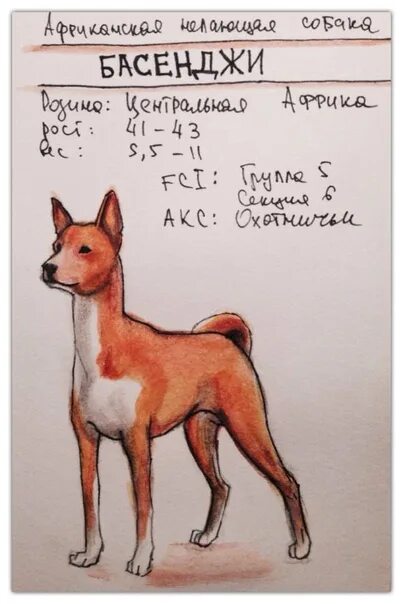 Африканская нелающая собака
БАСЕНДЖИ
Родина: Центральная Африка
рост: 41-43
вес: 9,5-11
FCI: Группа 5
Секция 6
АКС: Охотничьи